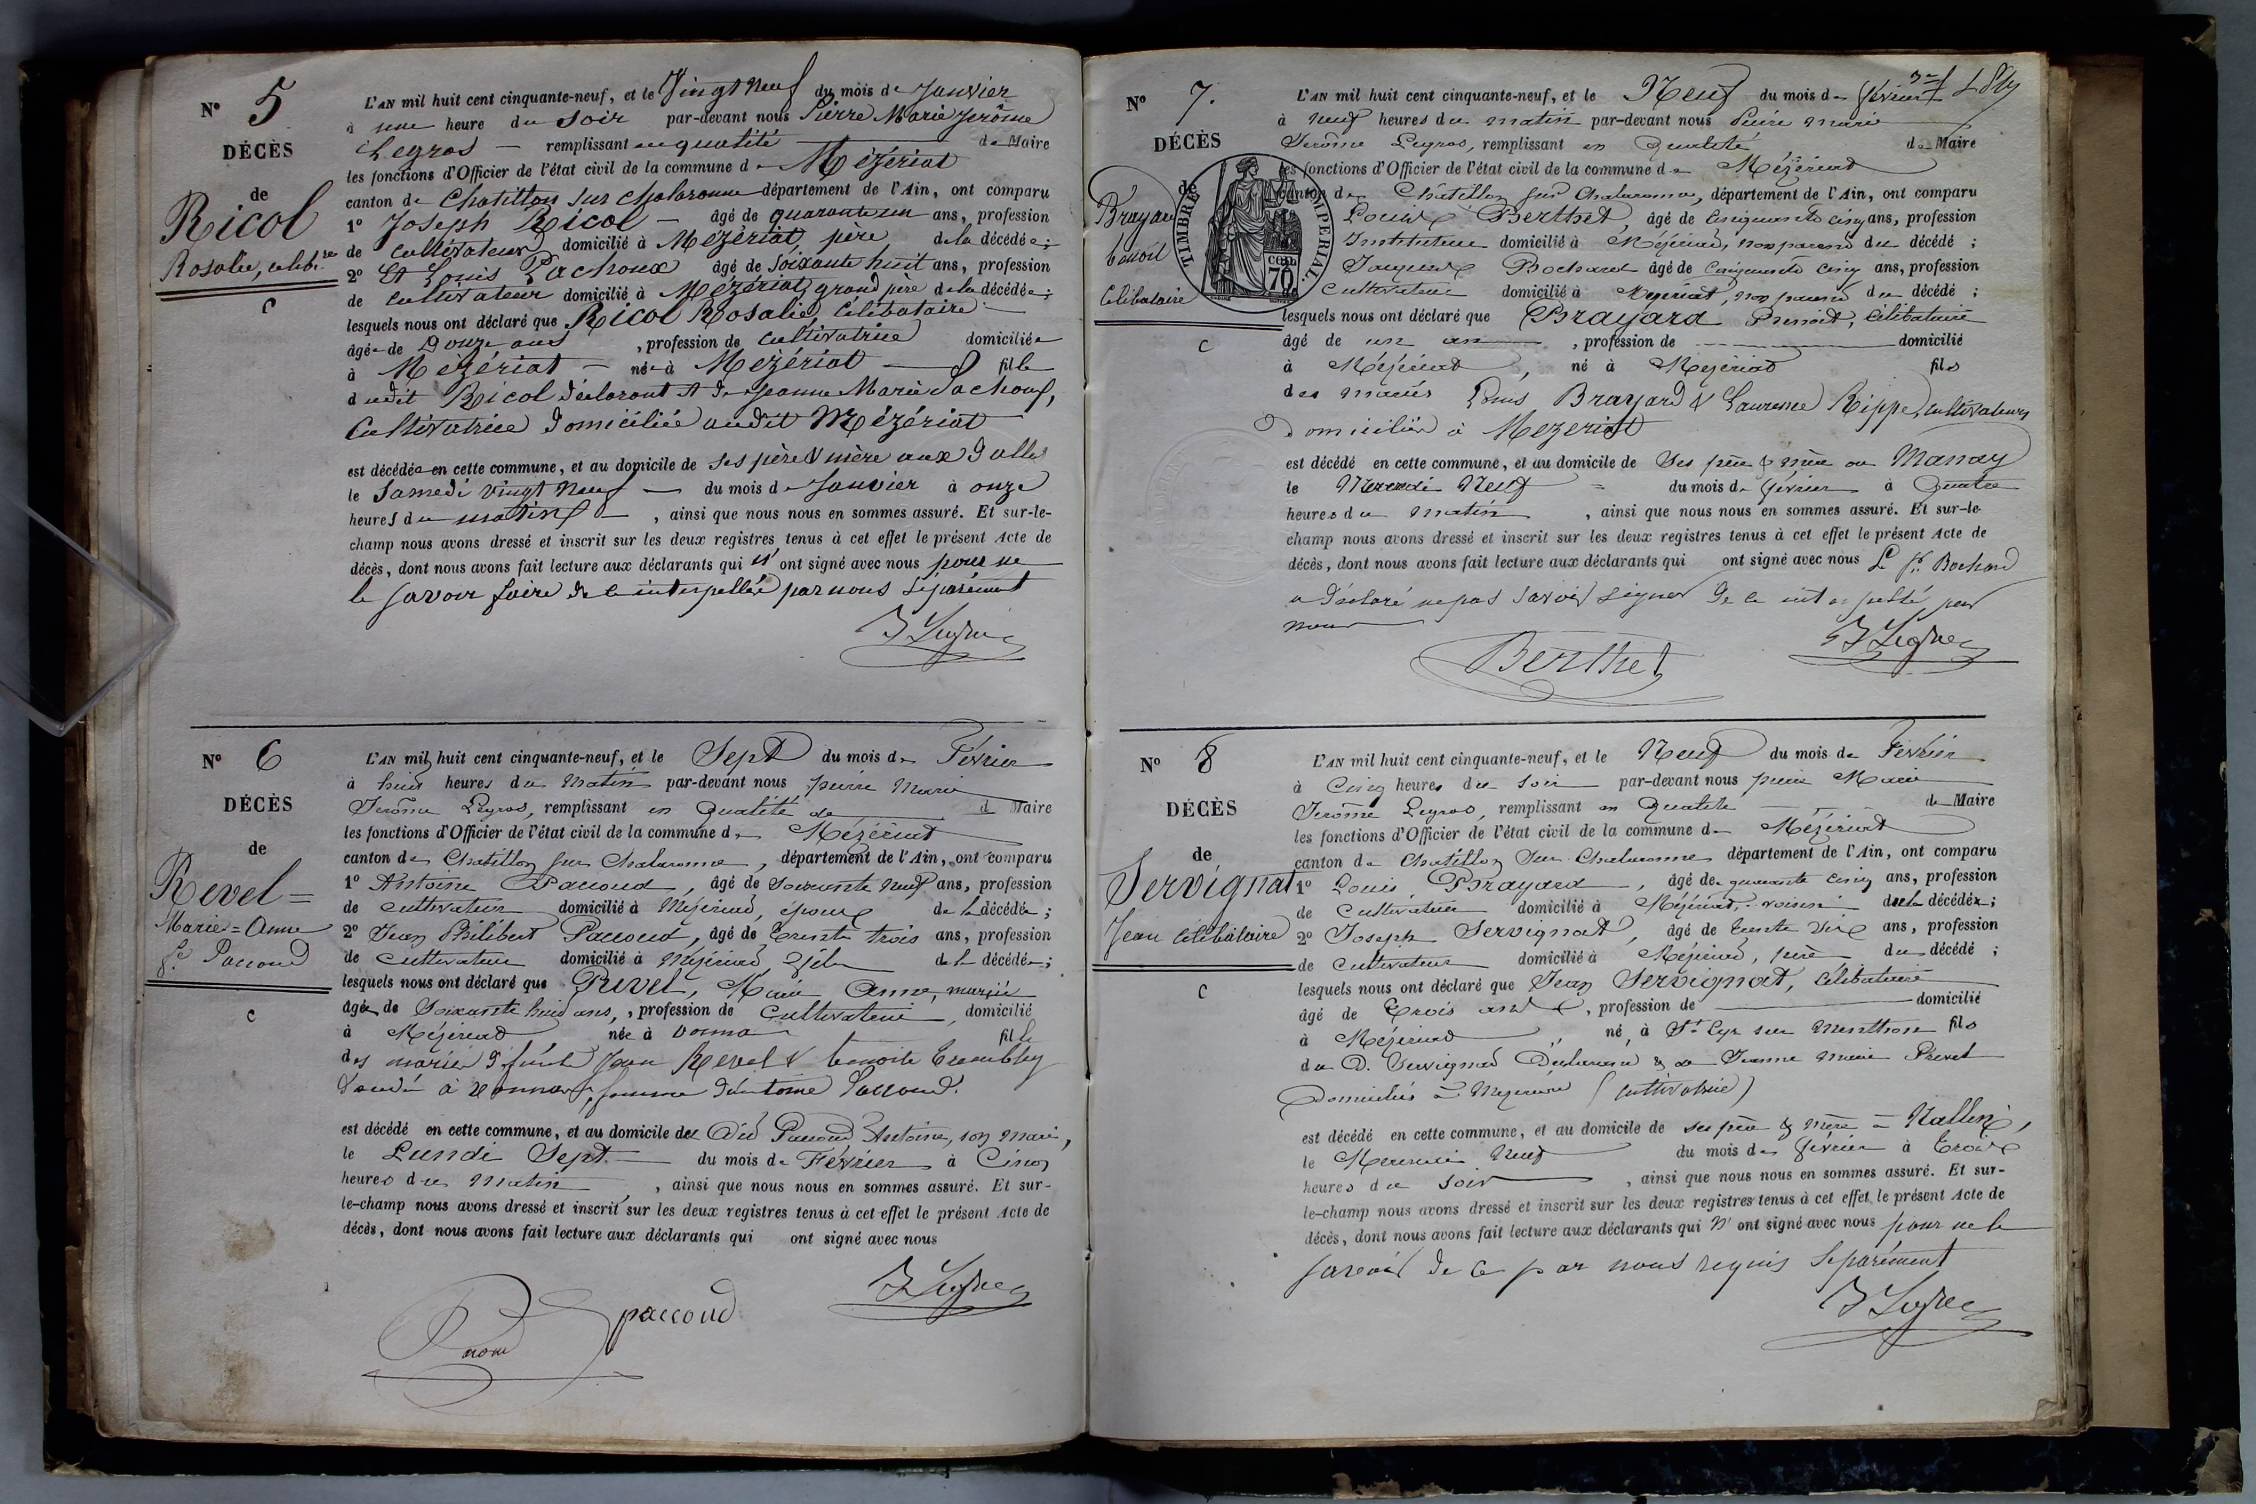 N° 5
DÉCÈS
de
Ricol
Rosalie, célib.re
C
L'AN mil huit cent cinquante-neuf, et le Vingt neuf du mois de Janvier
à une heure du Soir par-devant nous Pierre Marie Jerôme
Legros — remplissant en qualité de Maire
les fonctions d'Officier de l'état civil de la commune de Mézériat
canton de Chatillon sur chalaronne département de l'Ain, ont comparu
1° Joseph Ricol — âgé de quarante un ans, profession
de Cultivateur domicilié à Mézériat, père de la décédée ;
2° Et Louis Pachoux âgé de soixante huit ans, profession
de cultivateur domicilié à Mézériat, grand père de la décédée ;
lesquels nous ont déclaré que Ricol Rosalie, Célibataire
âgée de Douze ans , profession de Cultivatrice domiciliée
à Mézériat — née à Mézériat — fille
dudit Ricol déclarant et de Jeanne Marie Pachoux,
Cultivatrice domiciliée audit Mézériat
est décédée en cette commune, et au domicile de ses père & mère aux
le Samedi vingt neuf — du mois de Janvier à onze
heures du matin — , ainsi que nous nous en sommes assuré. Et sur-le-
champ nous avons dressé et inscrit sur les deux registres tenus à cet effet le présent Acte de
décès, dont nous avons fait lecture aux déclarants qui n' ont signé avec nous pour ne
le savoir faire de ce interpellé par nous séparément
J Legros
N° 6
DÉCÈS
de
Revel =
Marie = Anne
fe Paccoud
C
L'AN mil huit cent cinquante-neuf, et le Sept du mois de Février
à huit heures du Matin par-devant nous pierre Marie
Jerôme Legros, remplissant en Qualité de d Maire
les fonctions d'Officier de l'état civil de la commune de Mézériat
canton de Chatillon sur Chalaronne, département de l'Ain, ont comparu
1° Antoine Paccoud, âgé de soixante neuf ans, profession
de cultivateur domicilié à Mézériat, époux de la décédée ;
2° Jean Philibert Paccoud, âgé de Trente trois ans, profession
de cultivateur domicilié à Mézériat, fils de la décédée ;
lesquels nous ont déclaré que Revel, Marie Anne, mariée
âgée de Soixante huit ans, , profession de Cultivateur, domicilié
à Mézériat née à Vonnas fille
des mariés défunts Jean Revel & benoite Trembley
à Vonnas, femme d'Antoine Paccoud.
est décédé en cette commune, et au domicile de Dit Paccoud Antoine, son mari,
le Lundi Sept — du mois de Février à Cinq
heures du Matin , ainsi que nous nous en sommes assuré. Et sur-
le-champ nous avons dressé et inscrit sur les deux registres tenus à cet effet le présent Acte de
décès, dont nous avons fait lecture aux déclarants qui ont signé avec nous
J Legros
paccoud
N° 7.
DÉCÈS
de
Brayard
benoit
Célibataire
C
TIMBRE IMPERIAL.
70 cen.
L'AN mil huit cent cinquante-neuf, et le Neuf du mois de février
à neuf heures du matin par-devant nous Pierre Marie
Jerôme Legros, remplissant en Qualité de Maire
les fonctions d'Officier de l'état civil de la commune de Mézériat
canton de Chatillon sur Chalaronne, département de l'Ain, ont comparu
Louis Berthet, âgé de Cinquante cinq ans, profession
Instituteur domicilié à Mézériat, non parent du décédé ;
Jacques Bochard âgé de Cinquante cinq ans, profession
cultivateur domicilié à Mézériat, non parent du décédé ;
lesquels nous ont déclaré que Brayard Benoit, célibataire
âgé de un an , profession de — domicilié
à Mézériat, né à Mézériat fils
des mariés Louis Brayard & Laurence Rippe, cultivateurs
Domiciliés à Mezeriat
est décédé en cette commune, et au domicile de ses père & mère au Manay
le Mercredi Neuf = du mois de février à Quatre
heures du matin , ainsi que nous nous en sommes assuré. Et sur-le-
champ nous avons dressé et inscrit sur les deux registres tenus à cet effet le présent Acte de
décès, dont nous avons fait lecture aux déclarants qui ont signé avec nous Le Sr. Bochard
a déclaré ne pas savoir signer de ce interpellé par
nous
Berthet
J Legros
N° 8
DÉCÈS
de
Servignat
Jean Célibataire
C
L'AN mil huit cent cinquante-neuf, et le Neuf du mois de Février
à Cinq heures du Soir par-devant nous pierre Marie
Jerôme Legros, remplissant en Qualité — de Maire
les fonctions d'Officier de l'état civil de la commune de Mézériat
canton de Chatillon sur Chalaronne département de l'Ain, ont comparu
1° Louis Brayard —, âgé de quarante cinq ans, profession
de Cultivateur domicilié à Mézériat, voisin de décédé ;
2° Joseph Servignat, âgé de trente six ans, profession
de cultivateur domicilié à Mézériat, père du décédé ;
lesquels nous ont déclaré que Jean Servignat, célibataire
âgé de Trois ans , profession de — domicilié
à Mézériat , né à St Cyr sur Menthon fils
du D. Servignat Déclarant & de Jeanne Marie Prevel
Domiciliés à Mezeriat (cultivatrice)
est décédé en cette commune, et au domicile de ses père & mère =
le Mercredi Neuf du mois de février à Trois
heures du Soir , ainsi que nous nous en sommes assuré. Et sur-
le-champ nous avons dressé et inscrit sur les deux registres tenus à cet effet le présent Acte de
décès, dont nous avons fait lecture aux déclarants qui n' ont signé avec nous pour ne le
savoir de ce par nous requis séparément
J Legros